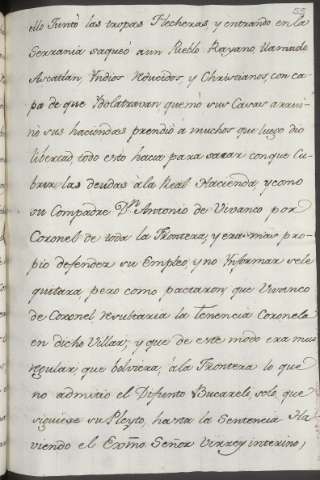 55
ello Juntó las tropas Flecheras, y entrando en la
Serrania saqueó aun Pueblo Rayano, llamado
Ascatlan, Yndios Reducidos, y Christianos, con ca-
pa de que Ydolatravan, quemó sus Casas arrui-
nó sus haciendas prendió á muchos que luego dio
libertad, todo esto hacia para sacar con que Cu-
brir las deudas à la Real Hacienda y como
su Compadre Dn. Antonio de Vivanco por
Coronel de toda la Frontera, y era mas pro-
pio defender su Empleo, y no Ynformar se le
quitara, pero como pactaron, que Vivanco
de Coronel resultaria la Tenencia Coronela
en dicho Villar; y que de este modo era mas
regular que bolviera, á la Frontera lo que
no admitió el Difunto Bucareli, solo, que
siguiese su Pleyto, hasta la Sentencia. Ha-
viendo el Exmo. Señor Virrey interino,